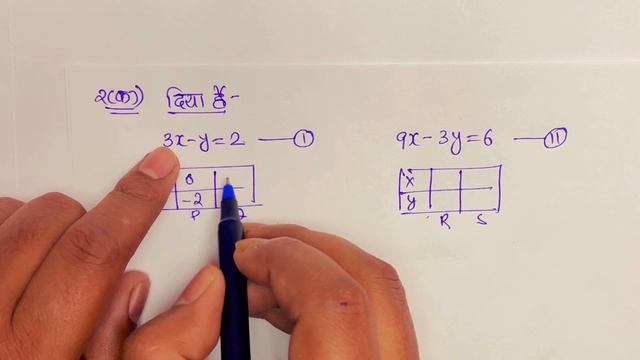 २(क) दिया है-
3x-y=2 —— (I) 9x-3y=6 —— (II)
0 x
-2 y
P R S